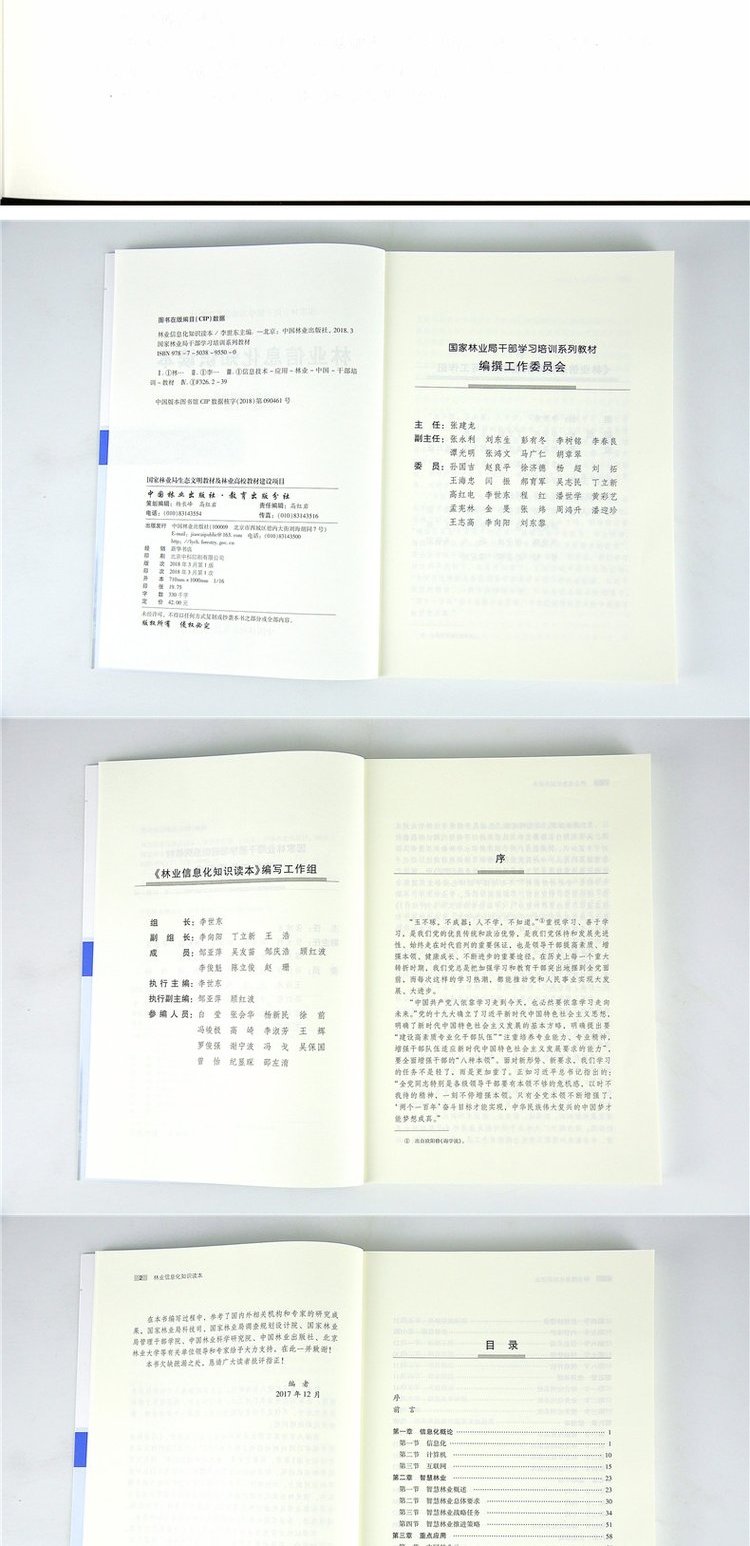 图书在版编目(CIP)数据
林业信息化知识读本 / 李世东主编. —北京：中国林业出版社，2018.3
国家林业局干部学习培训系列教材
ISBN 978-7-5038-9550-0
Ⅰ.①林… Ⅱ.①李… Ⅲ.①信息技术-应用-林业-中国-干部培
训-教材 Ⅳ.①F326.2-39
中国版本图书馆CIP数据核字(2018)第090461号
国家林业局生态文明教材及林业高校教材建设项目
中国林业出版社·教育出版分社
策划编辑：杨长峰 高红岩 责任编辑：高红岩
电话：(010)83143554 传真：(010)83143516
出版发行 中国林业出版社(100009 北京市西城区德内大街刘海胡同7号)
E-mail: jiaocaipublic@163.com 电话：(010)83143500
http://lycb.forestry.gov.cn
经 销 新华书店
印 刷 北京中科印刷有限公司
版 次 2018年3月第1版
印 次 2018年3月第1次
开 本 710mm×1000mm 1/16
印 张 19.75
字 数 330千字
定 价 62.00元
未经许可，不得以任何方式复制或抄袭本书之部分或全部内容。
版权所有 侵权必究
国家林业局干部学习培训系列教材
编撰工作委员会
主 任：张建龙
副主任：张永利 刘东生 彭有冬 李树铭 李春良
谭光明 张鸿文 马广仁 胡章翠
委 员：孙国吉 赵良平 徐济德 杨 超 刘 拓
王海忠 闫 振 郝育军 吴志民 丁立新
高红电 李世东 程 红 潘世学 黄彩艺
孟宪林 金 旻 张 炜 周鸿升 潘迎珍
王志高 李向阳 刘东黎
《林业信息化知识读本》编写工作组
组 长：李世东
副 组 长：李向阳 丁立新 王 浩
成 员：邹亚萍 吴友苗 邹庆浩 顾红波
李俊魁 陈立俊 赵 珊
执行主编：李世东
执行副主编：邹亚萍 顾红波
参编人员：白 莹 张会华 杨新民 徐 前
冯峻极 高 峰 李淑芳 王 辉
罗俊强 谢宁波 冯 戈 吴保国
曾 怡 纪昱琛 邵左淯
序
“玉不琢，不成器；人不学，不知道。”①重视学习、善于学
习，是我们党的优良传统和政治优势，是我们党保持和发展先进
性、始终走在时代前列的重要保证，也是领导干部提高素质、增
强本领、健康成长、不断进步的重要途径。在历史上每一个重大
转折时期，我们党总是把加强学习和教育干部突出地强到全党面
前，而每次这样的学习热潮，都能推动党和人民事业实现大发
展、大进步。
“中国共产党人依靠学习走到今天，也必然要依靠学习走向
未来。”党的十九大确立了习近平新时代中国特色社会主义思想，
明确了新时代中国特色社会主义发展的基本方略，明确提出要
“建设高素质专业化干部队伍”“注重培养专业能力、专业精神，
增强干部队伍适应新时代中国特色社会主义发展要求的能力”，
要全面增强干部的“八种本领”。面对新形势、新要求，我们学习
的任务不是轻了，而是更加重了。正如习近平总书记指出的：
“全党同志特别是各级领导干部要有本领不够的危机感，以时不
我待的精神，一刻不停增强本领。只有全党本领不断增强了，
‘两个一百年’奋斗目标才能实现，中华民族伟大复兴的中国梦才
能梦想成真。”
① 出自欧阳修《诲学说》。
2 林业信息化知识读本
在本书编写过程中，参考了国内外相关机构和专家的研究成
果，国家林业局科技司、国家林业局调查规划设计院、国家林业
局管理干部学院、中国林业科学研究院、中国林业出版社、北京
林业大学等有关单位领导和专家给予大力支持，在此一并致谢！
本书欠缺疏漏之处，恳请广大读者批评指正！
编 者
2017年12月
目 录
序
前 言
第一章 信息化概论 1
第一节 信息化 1
第二节 计算机 10
第三节 互联网 15
第二章 智慧林业 23
第一节 智慧林业概述 23
第二节 智慧林业总体要求 30
第三节 智慧林业战略任务 34
第四节 智慧林业推进策略 51
第三章 重点应用 58